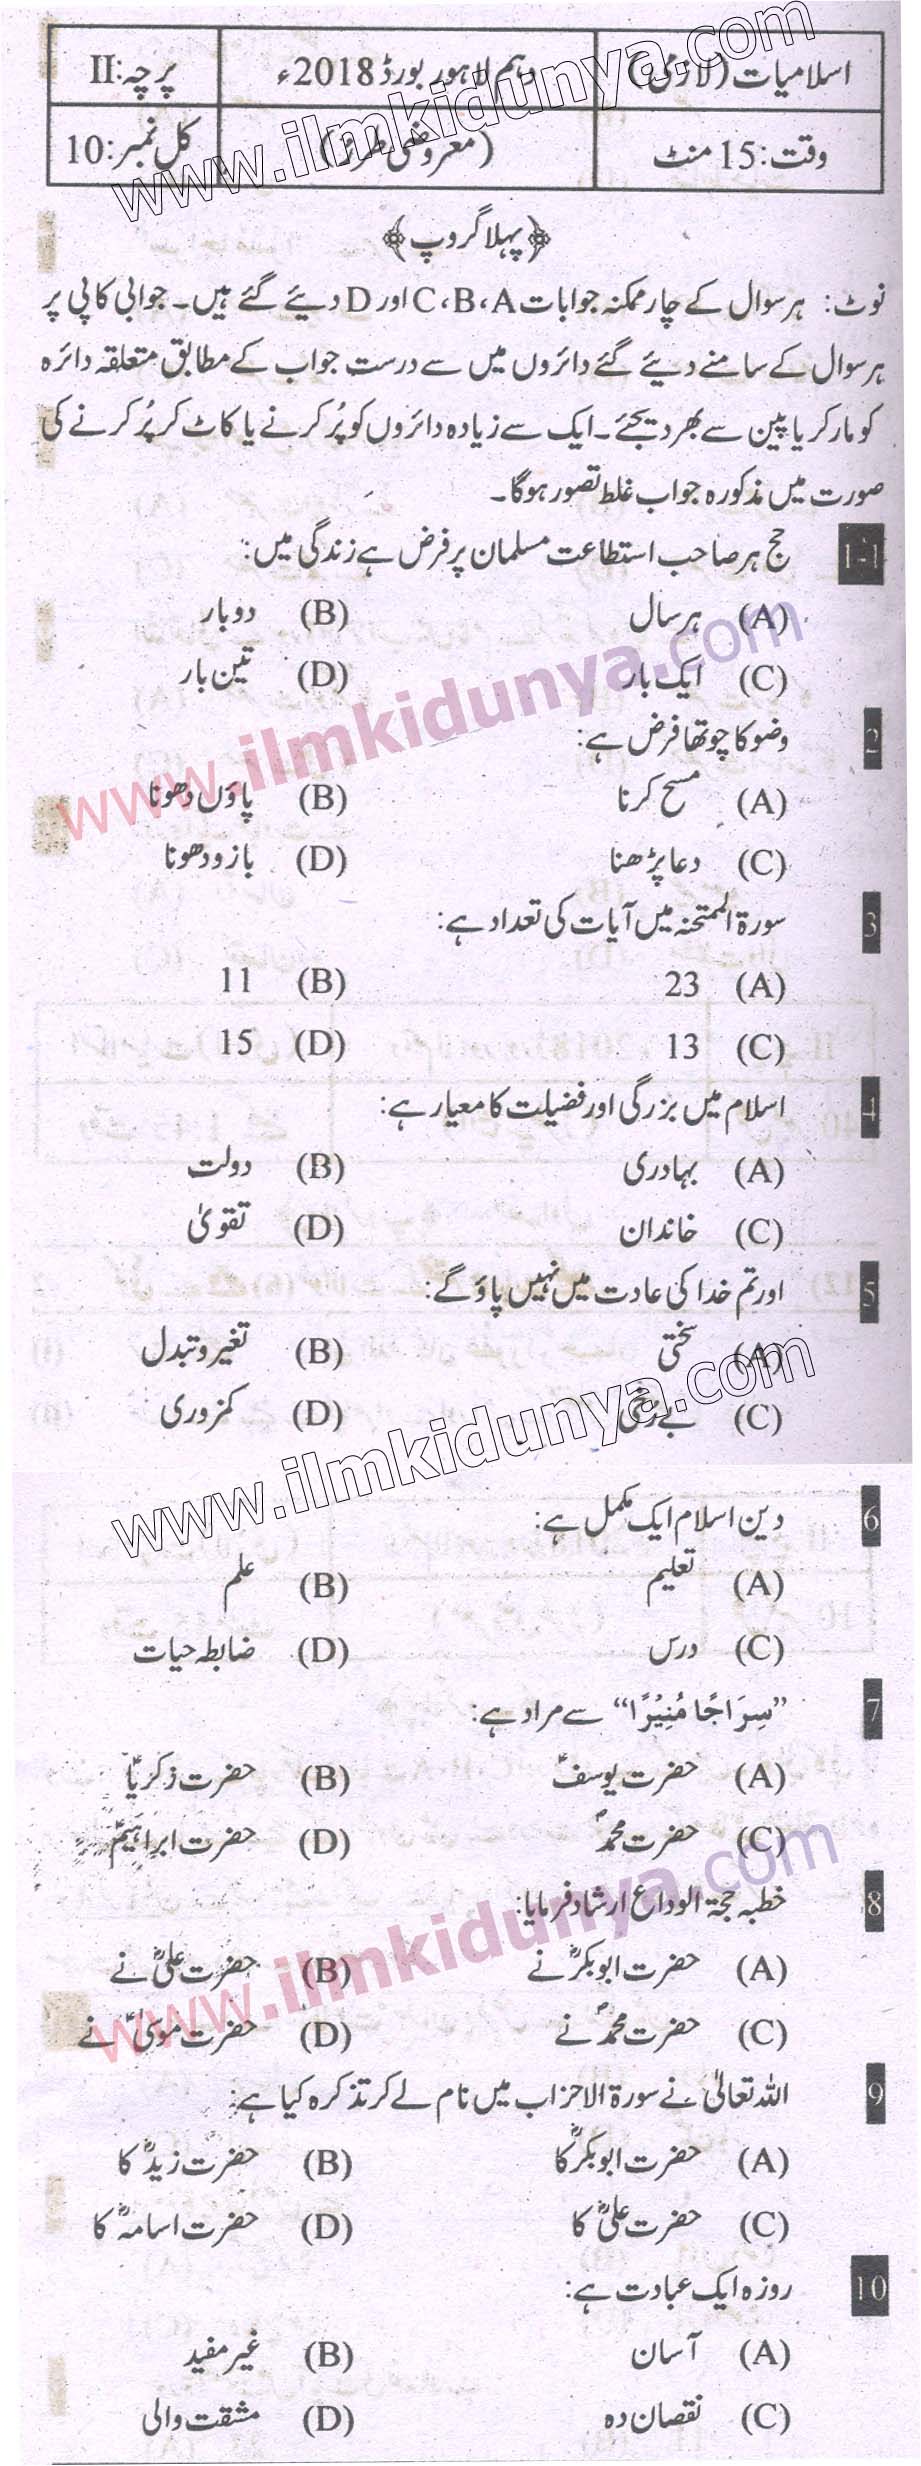 اسلامیات (لازمی) دہم لاہور بورڈ 2018ء پرچہ: II
وقت: 15 منٹ (معروضی طرز) کل نمبر: 10
﴿پہلا گروپ﴾
نوٹ: ہر سوال کے چار ممکنہ جوابات C،B،A اور D دیئے گئے ہیں۔ جوابی کاپی پر
ہر سوال کے سامنے دیئے گئے دائروں میں سے درست جواب کے مطابق متعلقہ دائرہ
کو مارکر یا پین سے بھر دیجئے۔ ایک سے زیادہ دائروں کو پُر کرنے یا کاٹ کر پُر کرنے کی
صورت میں مذکورہ جواب غلط تصور ہوگا۔
1-1 حج ہر صاحب استطاعت مسلمان پر فرض ہے زندگی میں:
(A) ہر سال (B) دو بار
(C) ایک بار (D) تین بار
2 وضو کا چوتھا فرض ہے:
(A) مسح کرنا (B) پاؤں دھونا
(C) دعا پڑھنا (D) بازو دھونا
3 سورۃ الممتحنہ میں آیات کی تعداد ہے:
(A) 23 (B) 11
(C) 13 (D) 15
4 اسلام میں بزرگی اور فضیلت کا معیار ہے:
(A) بہادری (B) دولت
(C) خاندان (D) تقویٰ
5 اور تم خدا کی عادت میں نہیں پاؤ گے:
(A) سختی (B) تغیر و تبدل
(C) بے رخی (D) کمزوری
6 دین اسلام ایک مکمل ہے:
(A) تعلیم (B) علم
(C) درس (D) ضابطہ حیات
7 ”سِرَاجًا مُنِیْرًا“ سے مراد ہے:
(A) حضرت یوسفؑ (B) حضرت ذکریاؑ
(C) حضرت محمدؐ (D) حضرت ابراہیمؑ
8 خطبہ حجۃ الوداع ارشاد فرمایا:
(A) حضرت ابوبکرؓ نے (B) حضرت علیؓ نے
(C) حضرت محمدؐ نے (D) حضرت موسیٰؑ نے
9 اللہ تعالیٰ نے سورۃ الاحزاب میں نام لے کر تذکرہ کیا ہے:
(A) حضرت ابوبکرؓ کا (B) حضرت زیدؓ کا
(C) حضرت علیؓ کا (D) حضرت اسامہؓ کا
10 روزہ ایک عبادت ہے:
(A) آسان (B) غیر مفید
(C) نقصان دہ (D) مشقت والی
www.ilmkidunya.com
www.ilmkidunya.com
www.ilmkidunya.com
www.ilmkidunya.com